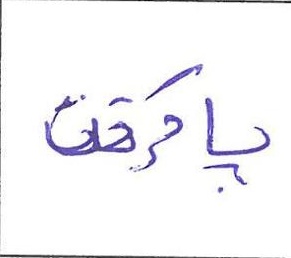 پا گرفتن